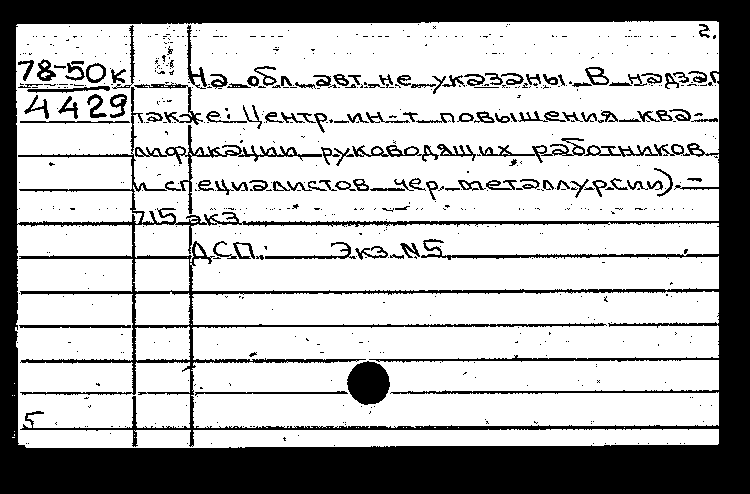 2.
78-50к
4429
На обл. авт. не указаны. В надзаг
также: Центр. ин-т повышения ква-
лификации руководящих работников
и специалистов чер. металлургии). -
715 экз.
ДСП.: Экз. N5.
5